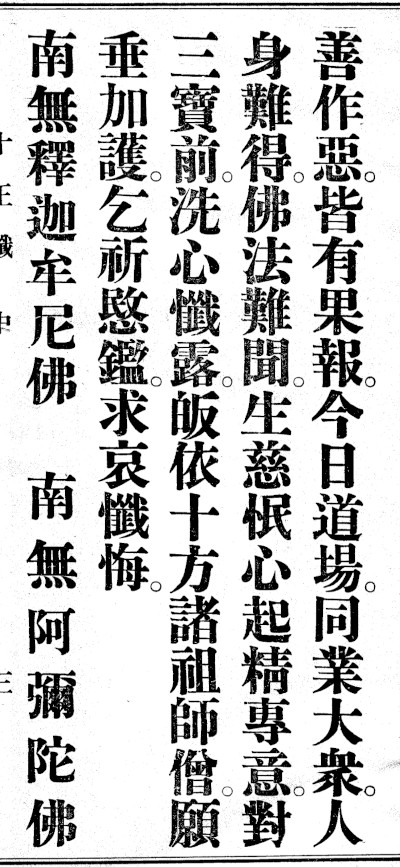 善作惡。皆有果報。今日道場。同業大衆。人
身難得。佛法難聞。生慈愍心起精專意。對
三寶前。洗心懺露。皈依十方諸祖師僧。願
垂加護。乞祈愍鑑。求哀懺悔。
南無釋迦牟尼佛　南無阿彌陀佛
十王懺　三